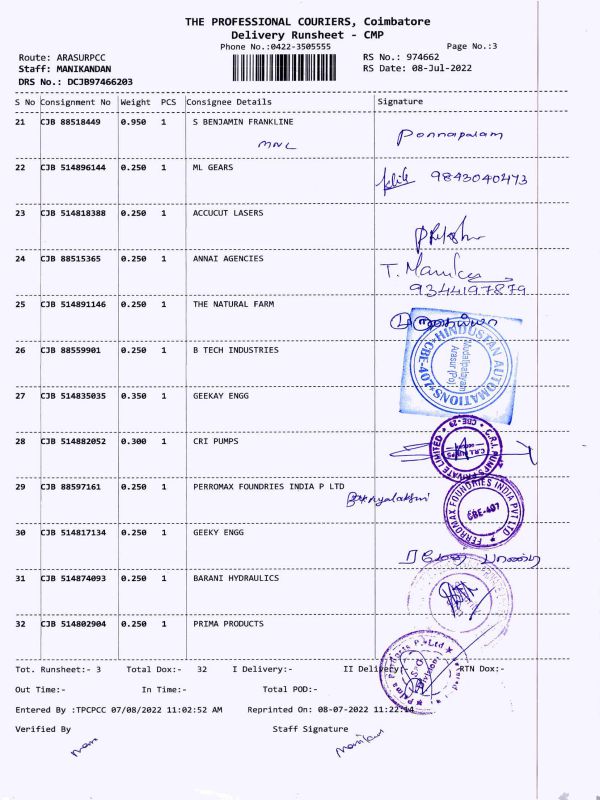 THE PROFESSIONAL COURIERS, Coimbatore
Delivery Runsheet - CMP
Phone No.:0422-3505555
Page No.:3
Route: ARASURPCC
RS No.: 974662
Staff: MANIKANDAN
RS Date: 08-Jul-2022
DRS No.: DCJB97466203
S No Consignment No Weight PCS Consignee Details Signature
21 CJB 88518449 0.950 1 S BENJAMIN FRANKLINE
Ponnapalam
22 CJB 514896144 0.250 1 ML GEARS
9843040473
23 CJB 514818388 0.250 1 ACCUCUT LASERS
24 CJB 88515365 0.250 1 ANNAI AGENCIES
9344197879
25 CJB 514891146 0.250 1 THE NATURAL FARM
26 CJB 88559901 0.250 1 B TECH INDUSTRIES
HINDUSTAN AUTOMATIONS
Arasur (Po)
CBE-407
27 CJB 514835035 0.350 1 GEEKAY ENGG
28 CJB 514882052 0.300 1 CRI PUMPS
C.R.I. PUMPS PRIVATE LIMITED
29 CJB 88597161 0.250 1 PERROMAX FOUNDRIES INDIA P LTD
FERROMAX FOUNDRIES INDIA PVT LTD
CBE-407
30 CJB 514817134 0.250 1 GEEKY ENGG
31 CJB 514874093 0.250 1 BARANI HYDRAULICS
32 CJB 514802904 0.250 1 PRIMA PRODUCTS
Tot. Runsheet:- 3 Total Dox:- 32 I Delivery:- II Delivery:- RTN Dox:-
Out Time:- In Time:- Total POD:-
Entered By :TPCPCC 07/08/2022 11:02:52 AM Reprinted On: 08-07-2022 11:22:14
Verified By Staff Signature